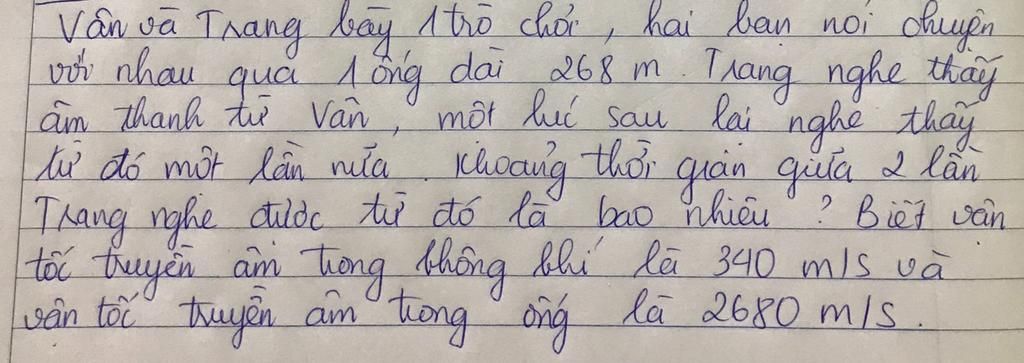 Vân và Trang bày 1 trò chơi, hai bạn nói chuyện
với nhau qua 1 ống dài 268 m. Trang nghe thấy
âm thanh từ Vân, một lúc sau lại nghe thấy
từ đó một lần nữa. Khoảng thời gian giữa 2 lần
Trang nghe được từ đó là bao nhiêu? Biết vận
tốc truyền âm trong không khí là 340 m/s và
vận tốc truyền âm trong ống là 2680 m/s.